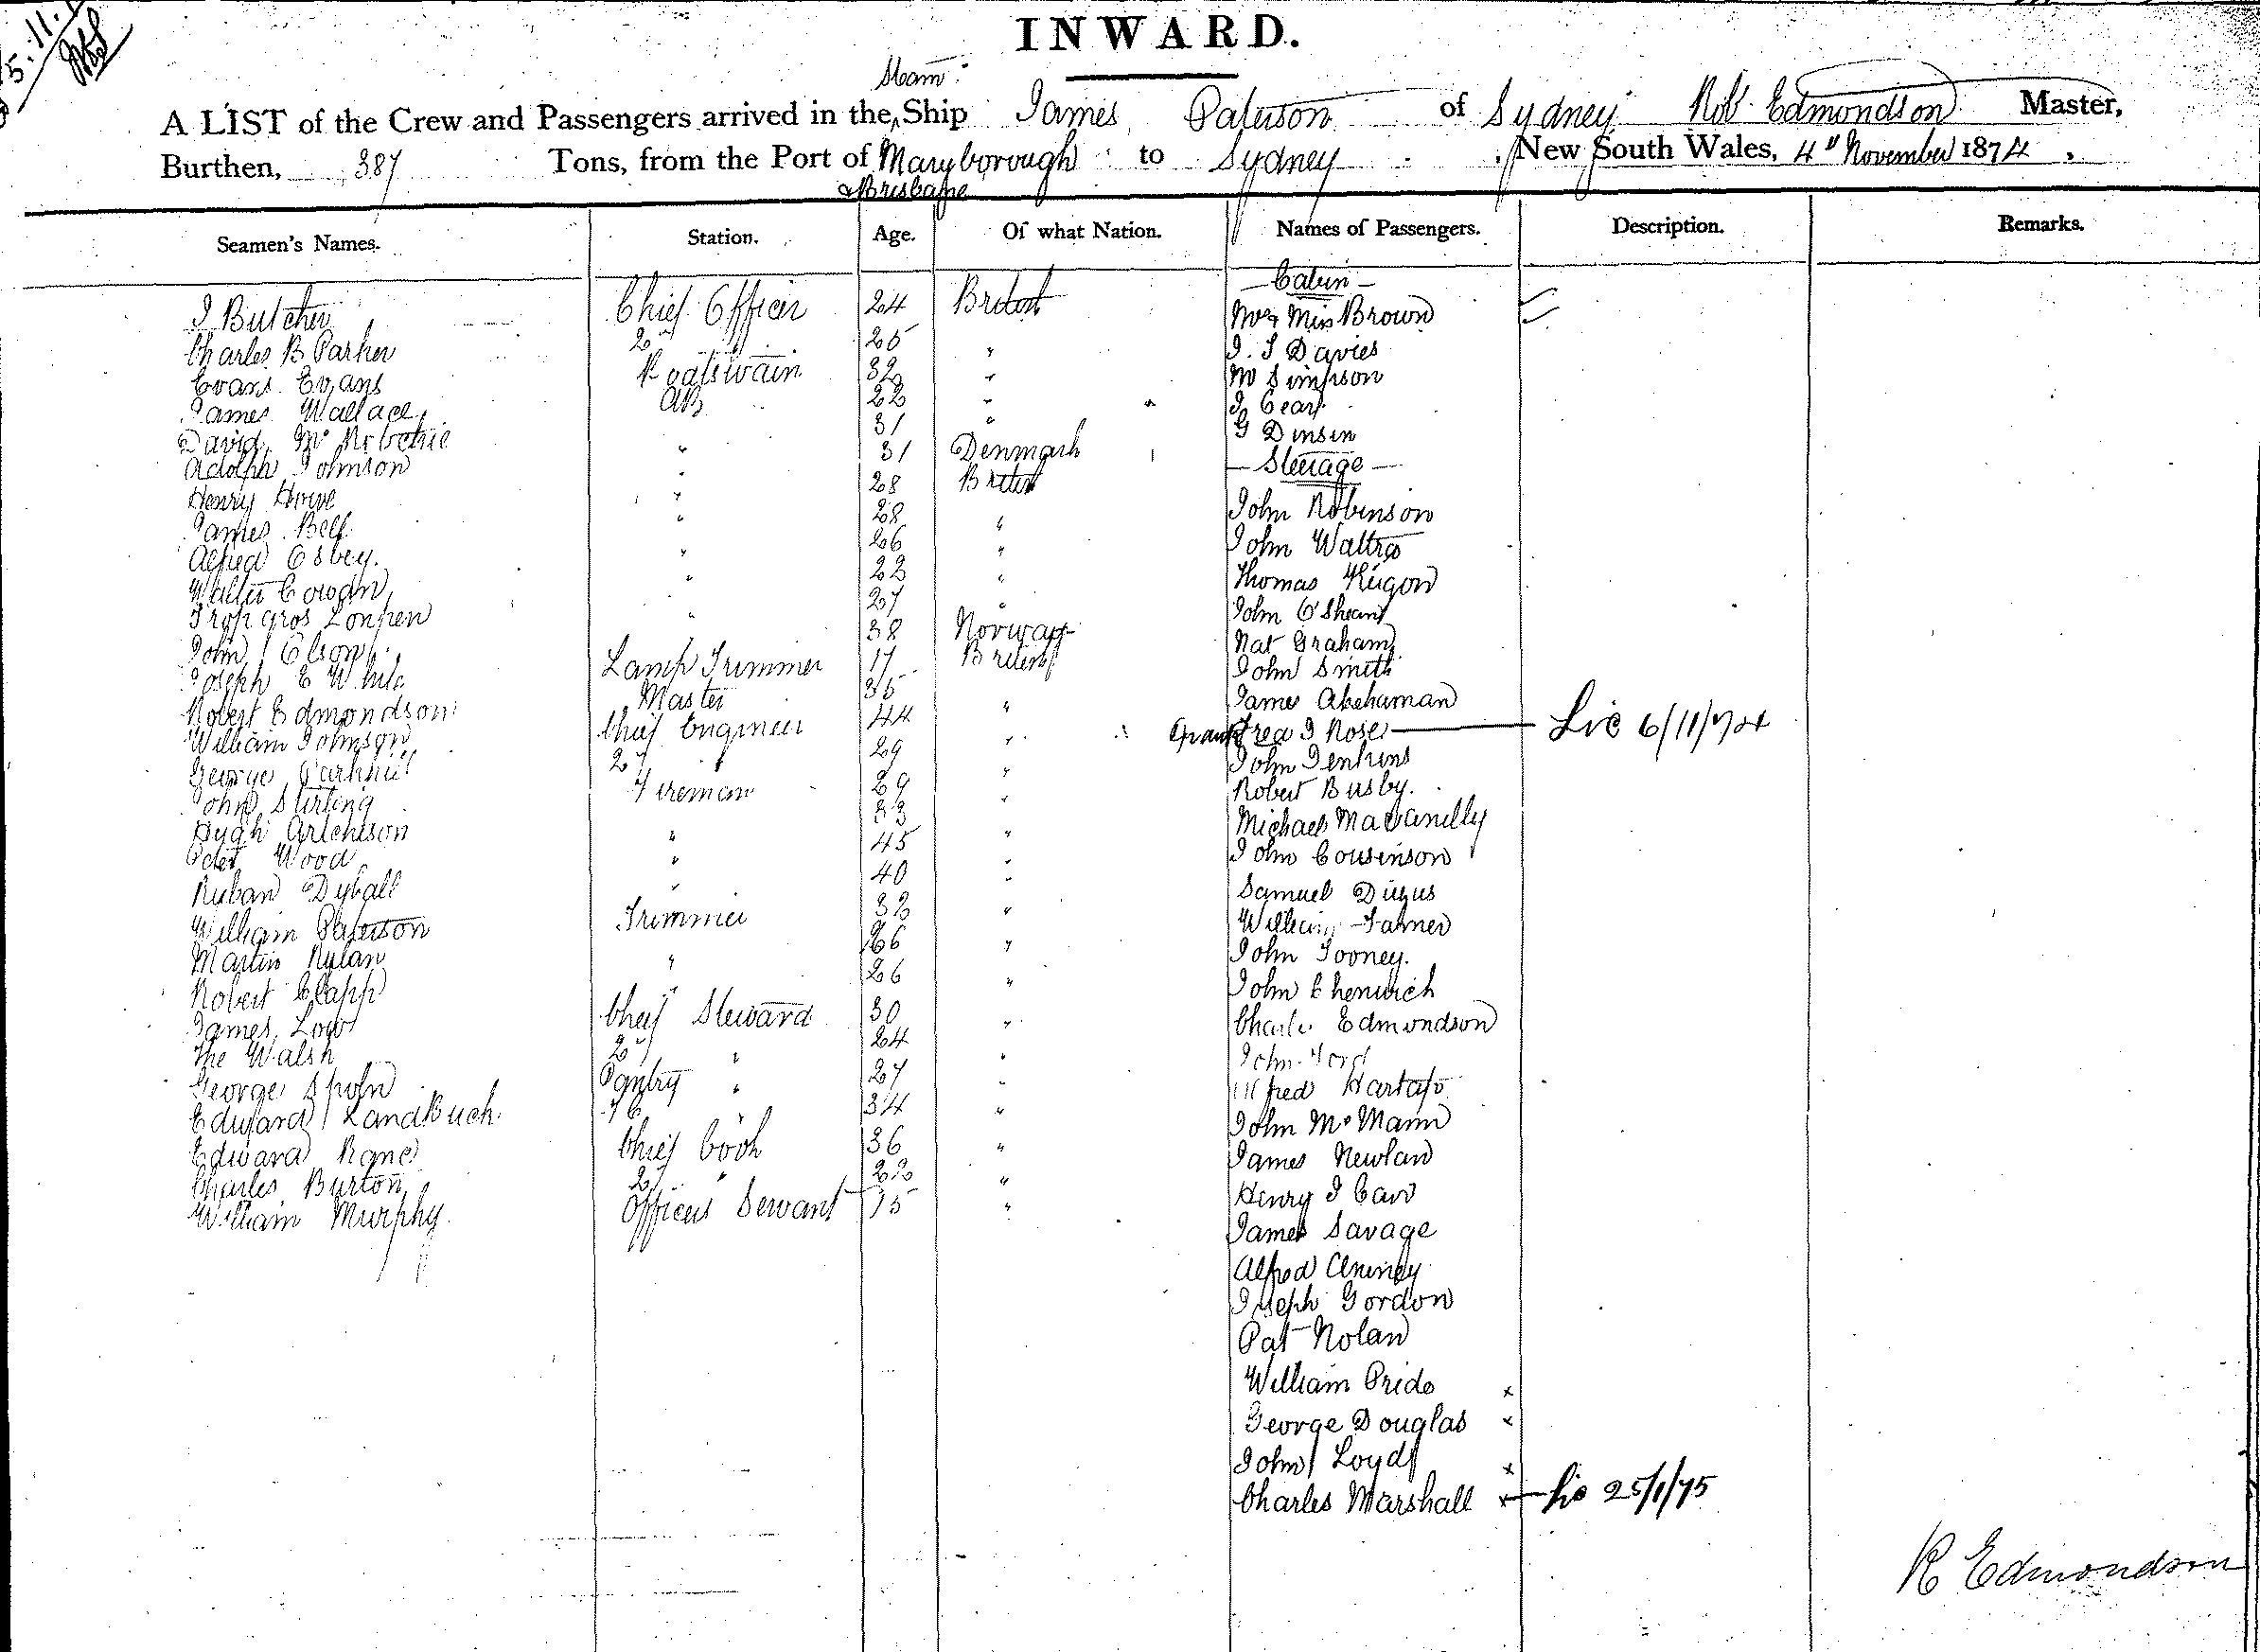 INWARD.
Steam
A LIST of the Crew and Passengers arrived in the Ship James Paterson of Sydney Robt. Edmondson Master,
Burthen, 387 Tons, from the Port of Maryborough to Sydney, New South Wales, 4th November 1874,
& Brisbane
Seamen's Names. Station. Age. Of what Nation. Names of Passengers. Description. Remarks.
J Butcher Chief Officer 24 British
Charles B Parker 2d " 25 "
Evans Evans Boatswain 32 "
James Wallace AB 22 "
David 31 "
Adolph Johnson " 31 Denmark
Henry Howe " 28 British
James Bell " 28 "
Alfred Osbey. " 26 "
Walter Cowan " 22 "
27 "
John Olson " 38 Norway
Joseph E White Lamp Trimmer 17 British
Robert Edmondson Master 35 "
William Johnson Chief Engineer 44 "
George 2d " 29 "
John Stirling Fireman 29 "
Hugh Artchison 33 "
Peter Wood " 45 "
Ruban Dyball " 40 "
William Paterson Trimmer 32 "
Martin Nylan " 26 "
Robert Clapp " 26 "
James Low Chief Steward 30 "
Walsh 2d " 24 "
George Spohn Pantry " 27 "
Edward LandBuch 34 "
Edward Kane Chief Cook 36 "
Charles Burton 2d " 22 "
William Murphy Officers Servant 15 "
Cabin
Mr & Miss Brown
J. S Davies
M Simpson
G Dinsin
Steerage
John Robinson
John
Thomas
John O'Sheant
Nat Graham
John Smith
James Akehaman
Fred J Rose Lic 6/11/74
John Jenkins
Robert Busby.
Michael
John Cousinson
Samuel
William Farmer
John Tooney.
John Chenwich
Charles Edmondson
John Ford
Alfred
John McMann
James Newlan
Henry J Carr
James Savage
Alfred
Joseph Gordon
Pat Nolan
William Pride x
George Douglas x
John Loyd x
Charles Marshall x Lic 25/1/75
R Edmondson